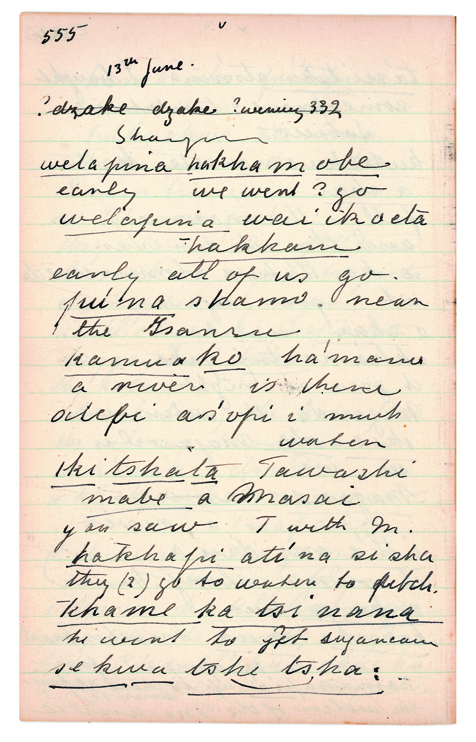 555
13th June.
?dzake dzake ?wening 332
welapina hakkham obe.
early we went ? go
welapina wai ik octa
hakkam
early all of us go.
pú na shamo. near
the Isanzu
kamuako há'mana
a river is there
atebi asopi i much
water
iki tshata Tawashi
mabe a Masai
you saw T with M.
hakhapi atí'na sisha
they (2) go to water to fetch.
khame ka tsi nana
he went to get sugarcane
se kwa tshe tsha: